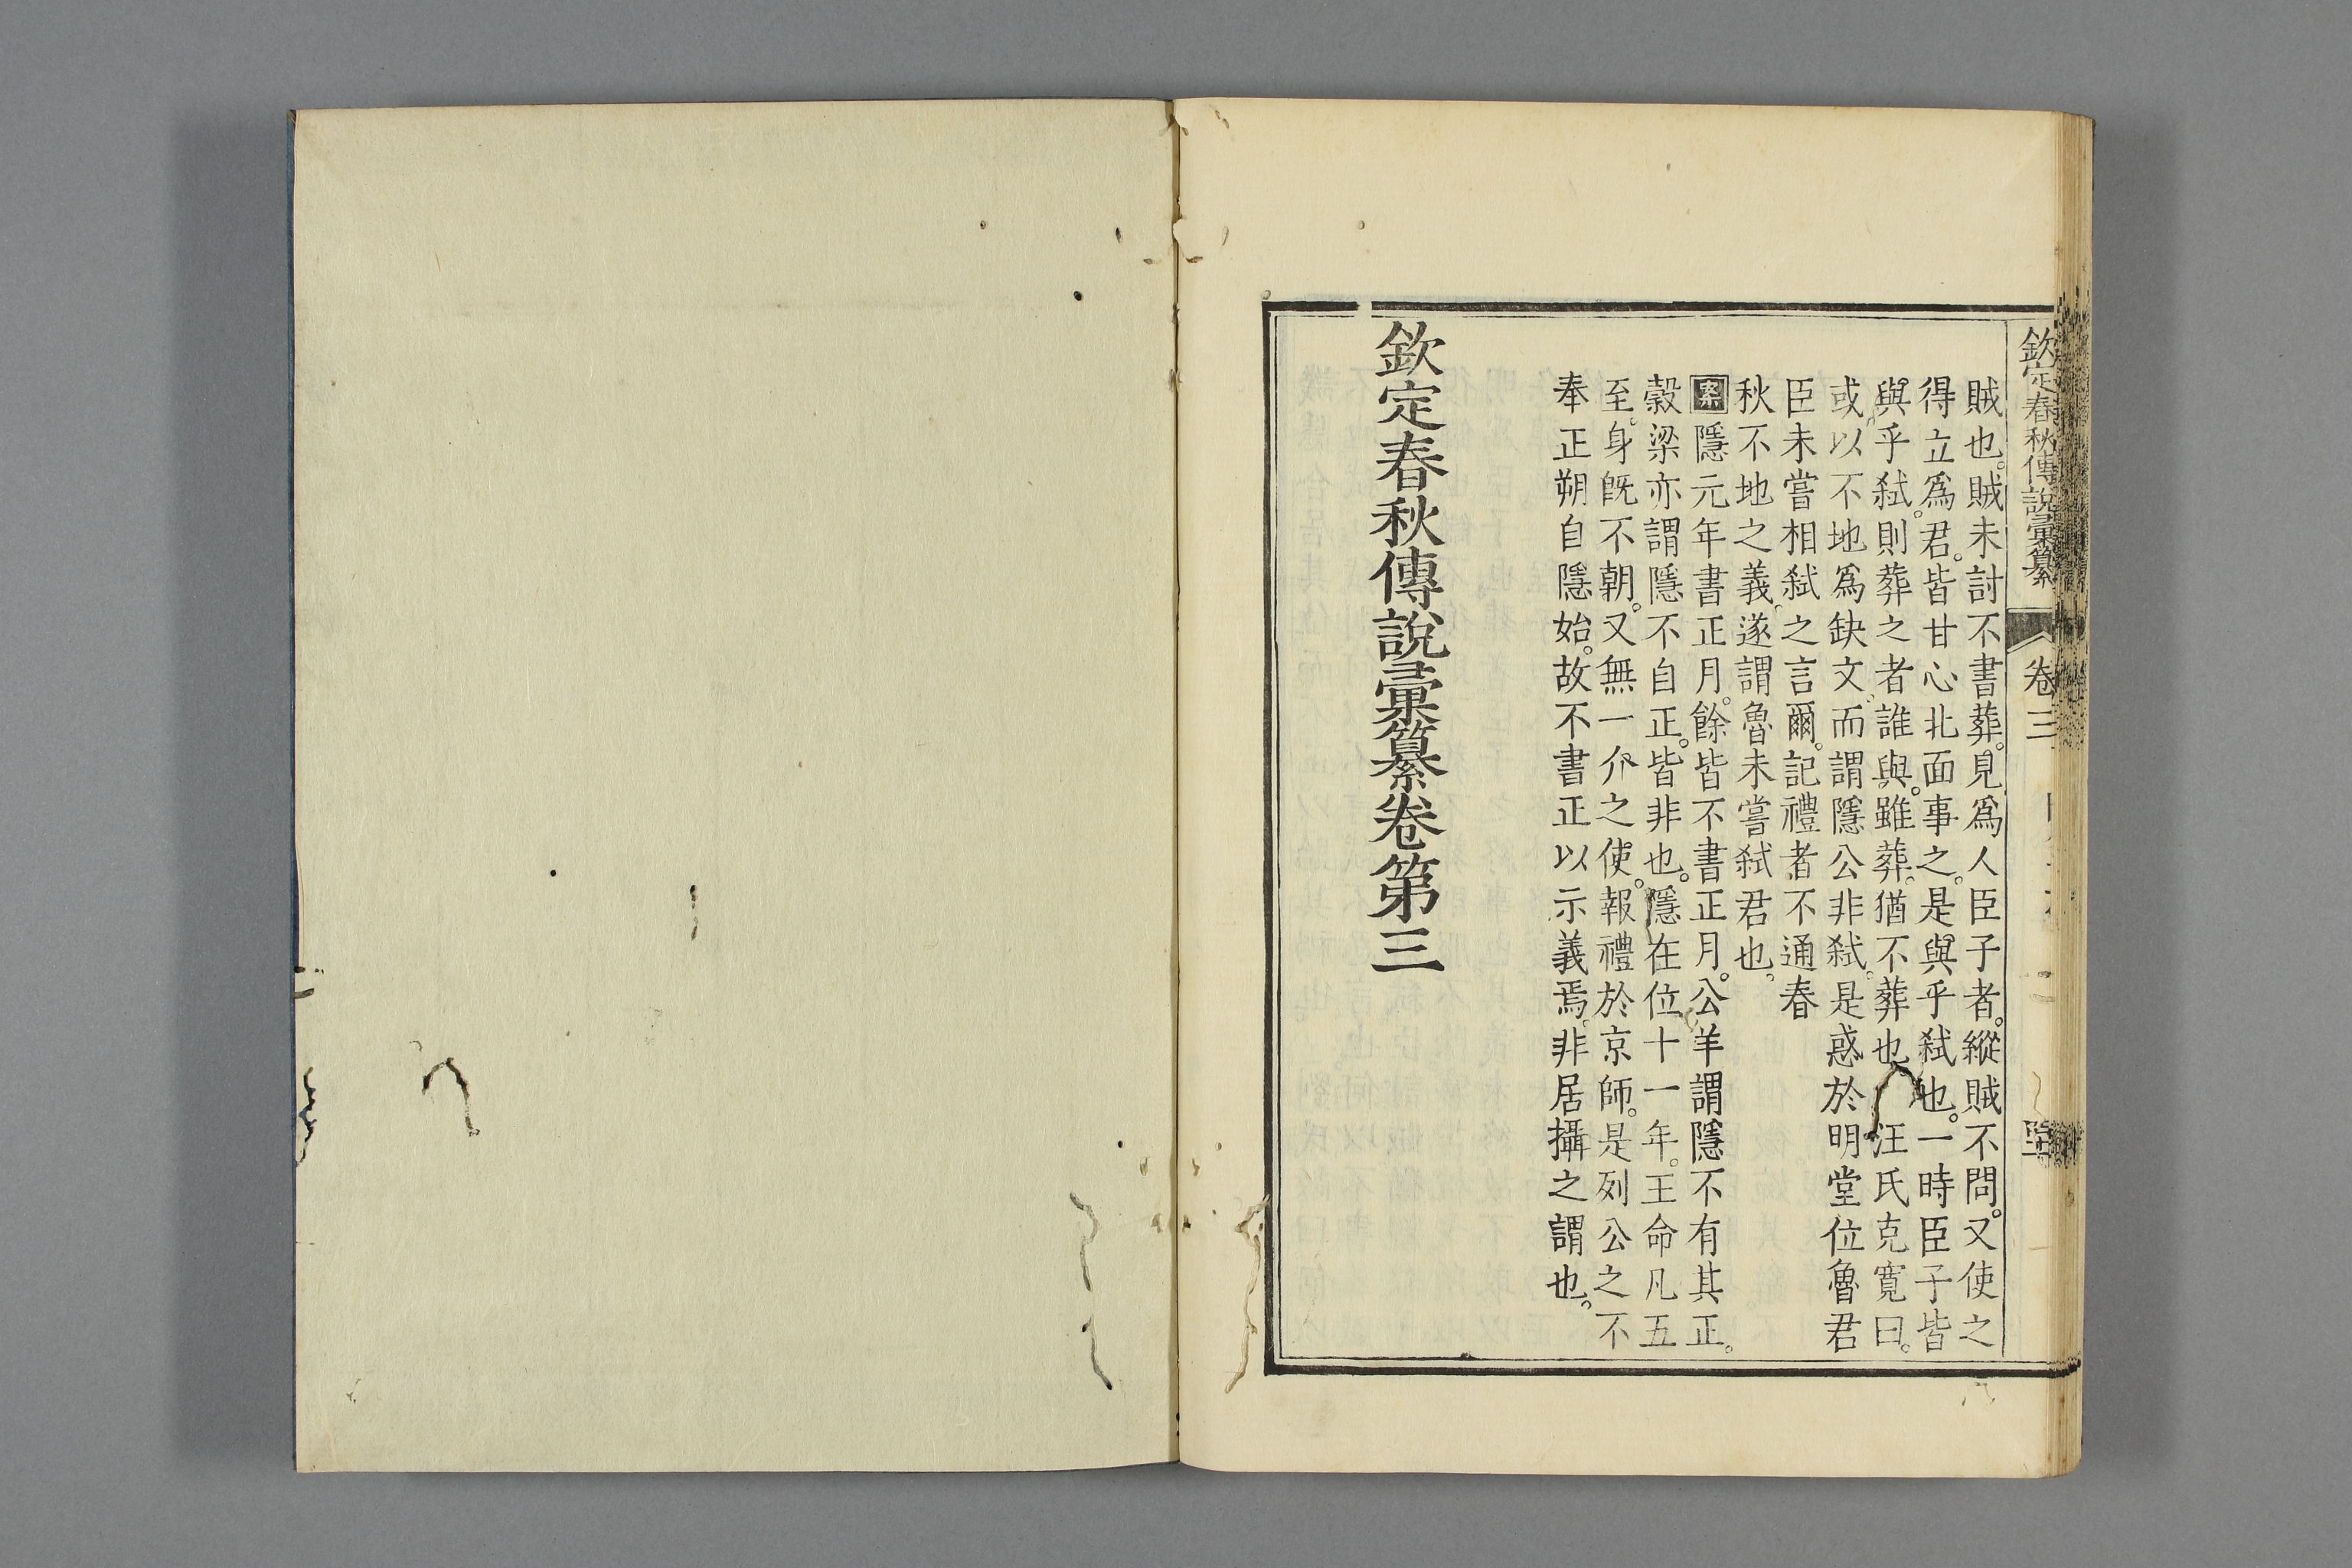 欽定春秋傳說彙纂 卷三
賊也。賊未討不書葬。見爲人臣子者。縱賊不問。又使之
得立爲君。皆甘心北面事之。是與乎弑也。一時臣子皆
與乎弑。則葬之者誰與。雖葬。猶不葬也。汪氏克寬曰。
或以不地爲缺文。而謂隱公非弑。是惑於明堂位魯君
臣未嘗相弑之言爾。記禮者不通春
秋不地之義。遂謂魯未嘗弑君也。
案隱元年書正月。餘皆不書正月。公羊謂隱不有其正。
穀梁亦謂隱不自正。皆非也。隱在位十一年。王命凡五
至。身旣不朝。又無一介之使。報禮於京師。是列公之不
奉正朔自隱始。故不書正以示義焉。非居攝之謂也。
欽定春秋傳說彙纂卷第三